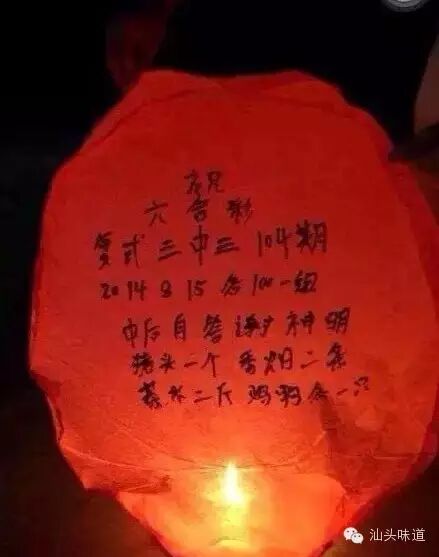 祝
六合彩
复式三中三 104期
2014 8 15 各100一组
中后自答谢神明
猪头一个 香烟二条
茶米二斤 鸡鹅各一只
汕头味道